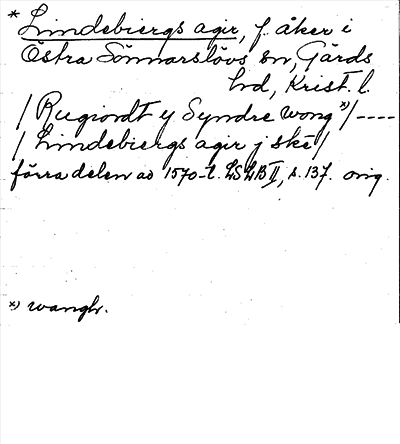 * Lindebiergs agir, f. åker i
Östra Sönnarslövs sn, Gärds
hd, Krist. l.
/ Rugiordt y Syndre wong x)/ ----
/ Lindebiergs agir j skê /
förra delen av 1570-t. LSLB II, s. 137. orig.
x) wangh.